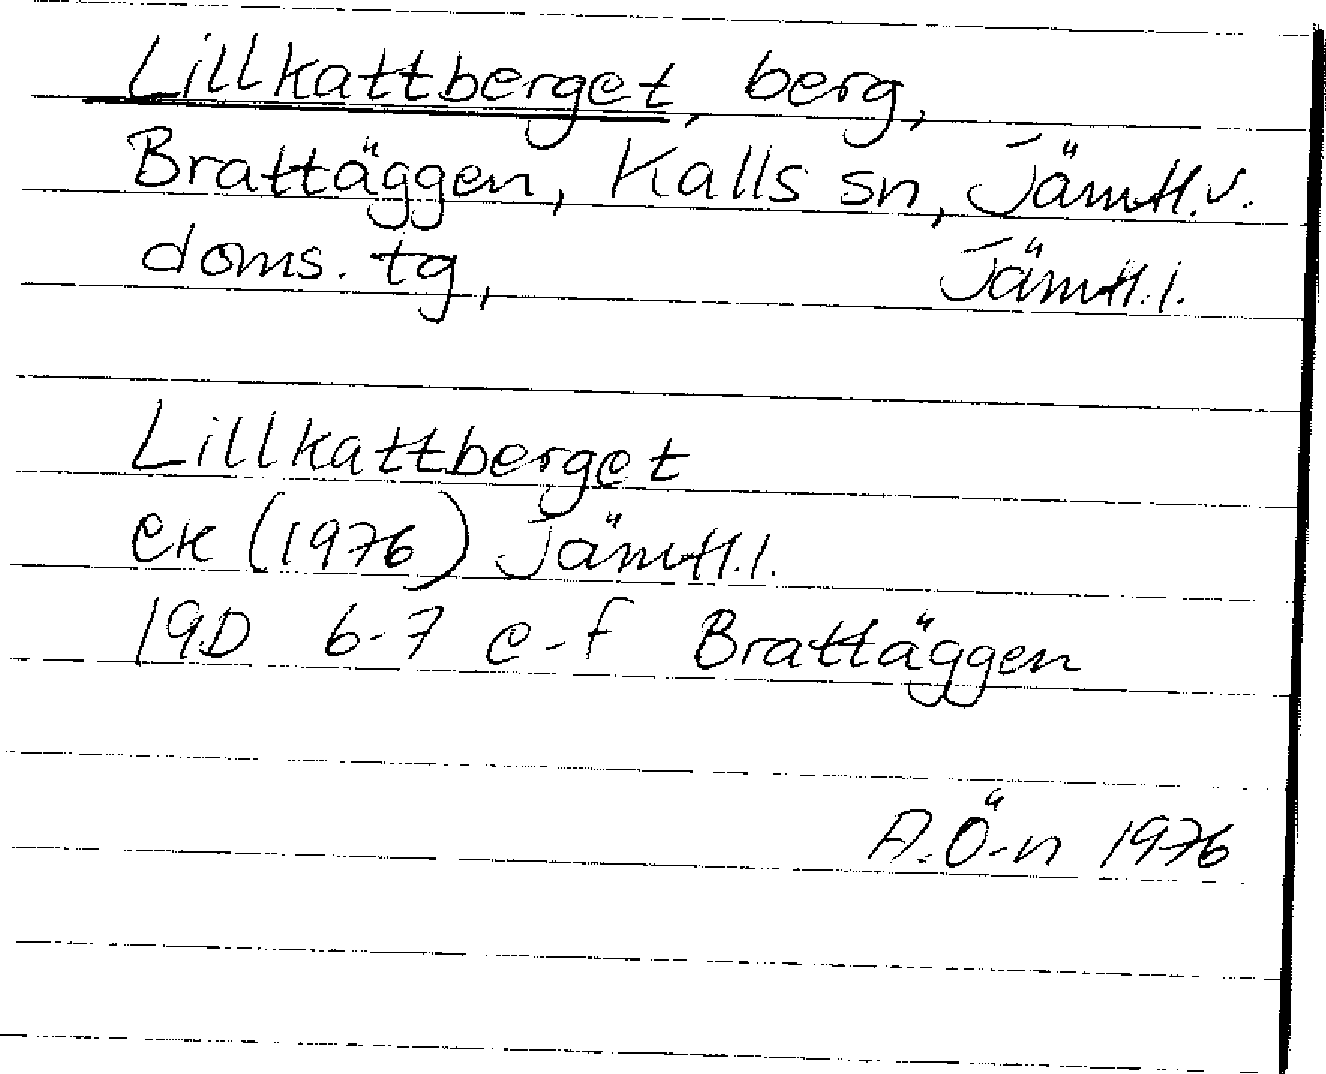 Lillkattberget, berg,
Brattäggen, Kalls sn, Jämtl.v.
doms. tg, Jämtl.l.
Lillkattberget
ek (1976) Jämtl.l.
19D 6-7 e-f Brattäggen
A.Ö-n 1976